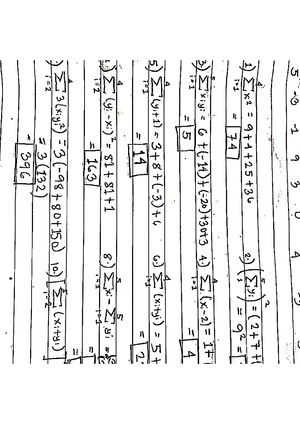 5 -3 -1 9 3 0 4
1) \sum_{i=1}^{4} x_i^2 = 9+4+25+36
= 74
2) \left(\sum_{1}^{5} y_i\right)^2 = (2+7+(
= 9^2 =
3) \sum_{i=1}^{5} x_i y_i = 6+(-14)+(-20)+30+3
= 5
4) \sum_{i=1}^{4} (x-2) = 1+
= 4
5) \sum_{i=1}^{4} (y_i+1) = 3+8+(-3)+6
= 14
6) \sum_{i=1}^{4} (x_i+y_i) = 5+
= 2
\sum_{i=1}^{4} (y_i-x_i)^2 = 81+81+1
= 163
8) \sum_{i=1}^{5} x_i - \sum_{i=1}^{5} y_i =
=
\sum_{i=2}^{4} 3(x_i y_i^2) = 3(-98+80+150)
= 3(132)
= 396
10) \sum_{i=2}^{4} (x_i+y_i)